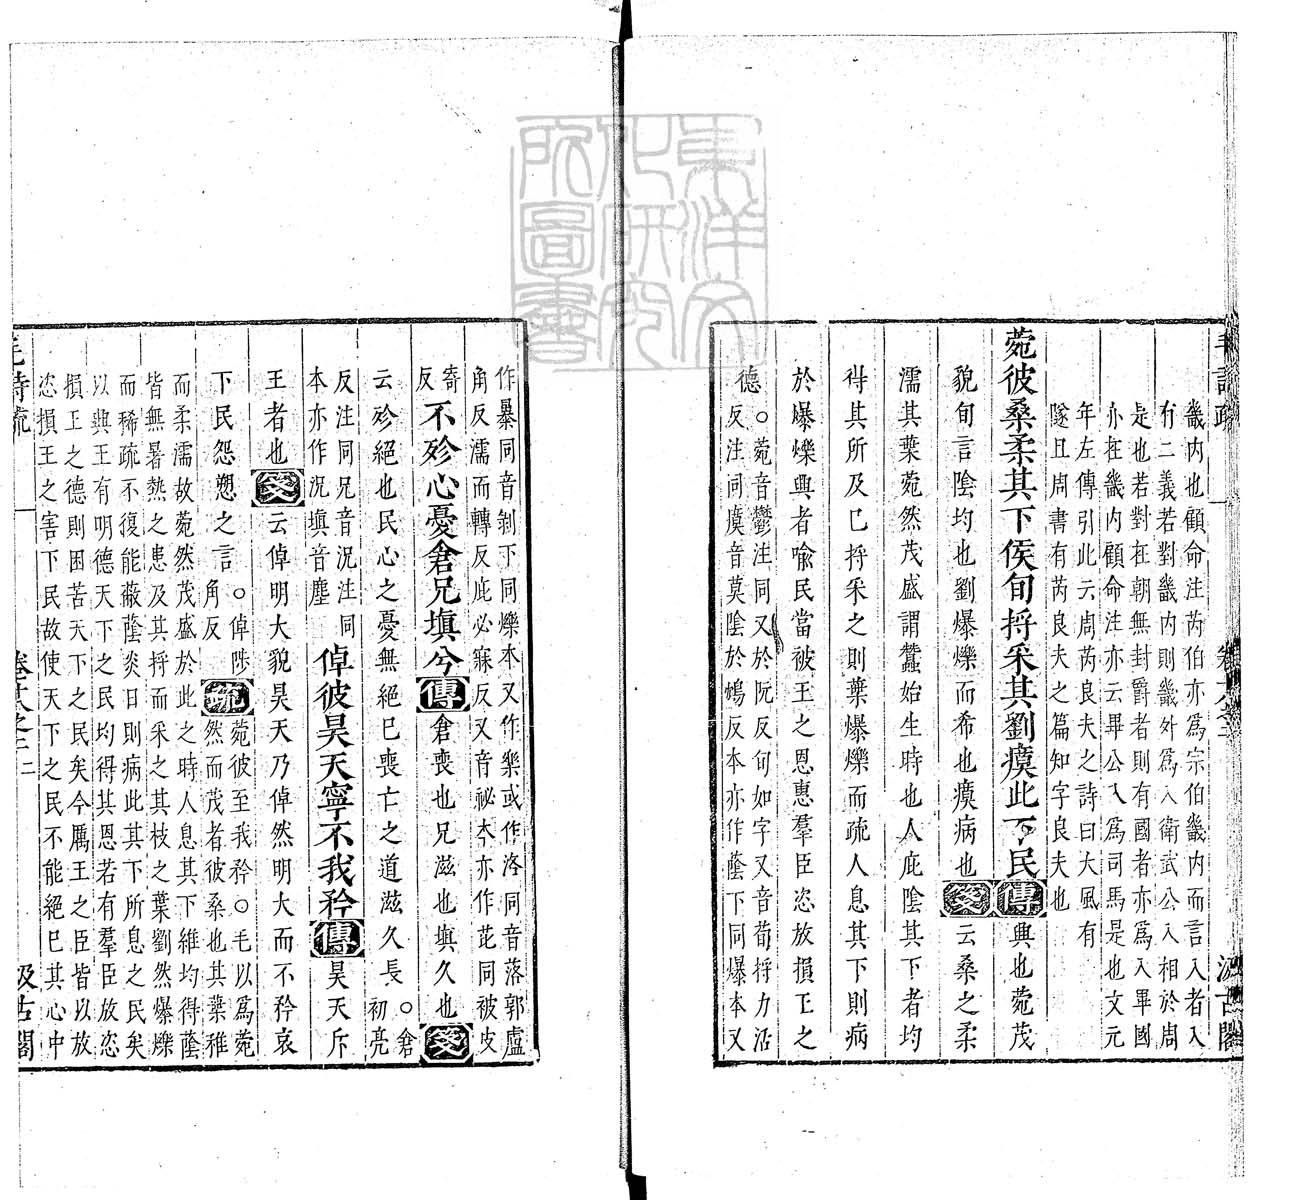 畿内也顧命注芮伯亦爲宗伯畿内而言入者入
有二義若對畿内則畿外爲入衛武公入相於周
是也若對在朝無封爵者則有國者亦爲入畢國
亦在畿内顧命注亦云畢公入爲司馬是也文元
年左傳引此云周芮良夫之詩曰大風有
隧且周書有芮良夫之篇知字良夫也
菀彼桑柔其下侯旬捋采其劉瘼此下民傳興也菀茂
貌旬言陰均也劉爆爍而希也瘼病也箋云桑之柔
濡其葉菀然茂盛謂蠶始生時也人庇陰其下者均
得其所及已捋采之則葉爆爍而疏人息其下則病
於爆爍興者喻民當被王之恩惠羣臣恣放損王之
德
○菀音鬱注同又於阮反旬如字又音荀捋力活
反注同瘼音莫陰於鴆反本亦作蔭下同爆本又
作㬥同音剝下同爍本又作樂或作洛同音落郭盧
角反濡而轉反庇必寐反又音祕本亦作芘同被皮
寄
反
不殄心憂倉兄填兮傳倉喪也兄滋也填久也箋
云殄絕也民心之憂無絕已喪亡之道滋久長
○倉
初亮
反注同兄音況注同
本亦作況填音塵
倬彼昊天寧不我矜傳昊天斥
王者也箋云倬明大貌昊天乃倬然明大而不矜哀
下民怨愬之言
○倬陟
角反
疏
菀彼至我矜○毛以爲菀
然而茂者彼桑也其葉稚
而柔濡故菀然茂盛於此之時人息其下維均得蔭
皆無暑熱之患及其捋而采之其枝之葉劉然爆爍
而稀疏不復能蔽蔭炎日則病此其下所息之民矣
以興王有明德天下之民均得其恩若有羣臣放恣
損王之德則困苦天下之民矣今厲王之臣皆以放
恣損王之害下民故使天下之民不能絕已其心中
毛詩疏
卷十八之二
二
汲古閣